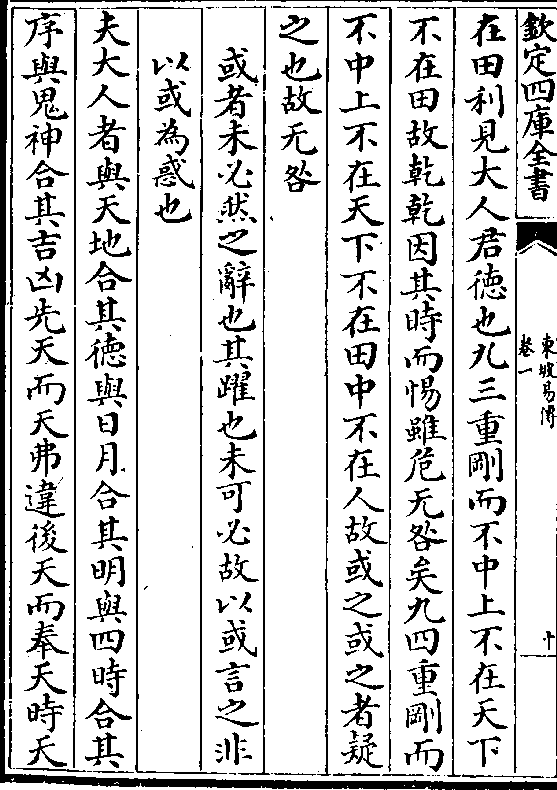 欽定四庫全書
東坡易傳
卷一
十
在田利見大人君德也九三重剛而不中上不在天下
不在田故乾乾因其時而惕雖危无咎矣九四重剛而
不中上不在天下不在田中不在人故或之或之者疑
之也故无咎
或者未必然之辭也其躍也未可必故以或言之非
以或為惑也
夫大人者與天地合其德與日月合其明與四時合其
序與鬼神合其吉凶先天而天弗違後天而奉天時天